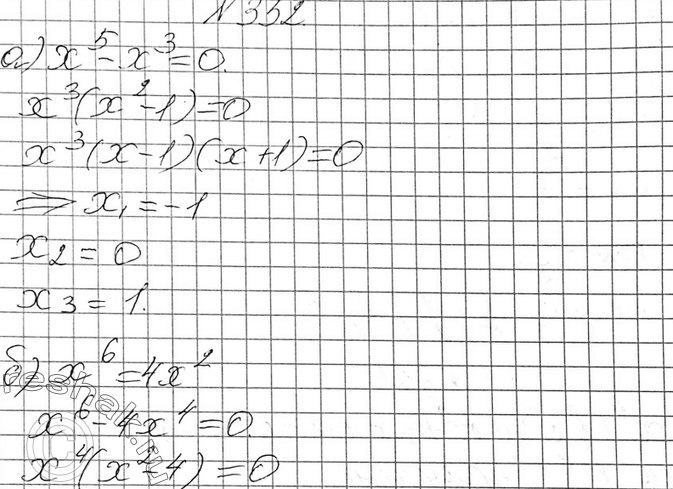 №332.
а) x⁵ - x³ = 0.
x³(x² - 1) = 0
x³(x - 1)(x + 1) = 0
⇒ x₁ = -1
x₂ = 0
x₃ = 1.
б) x⁶ = 4x²
x⁶ - 4x⁴ = 0.
x⁴(x² - 4) = 0
reshak.ru